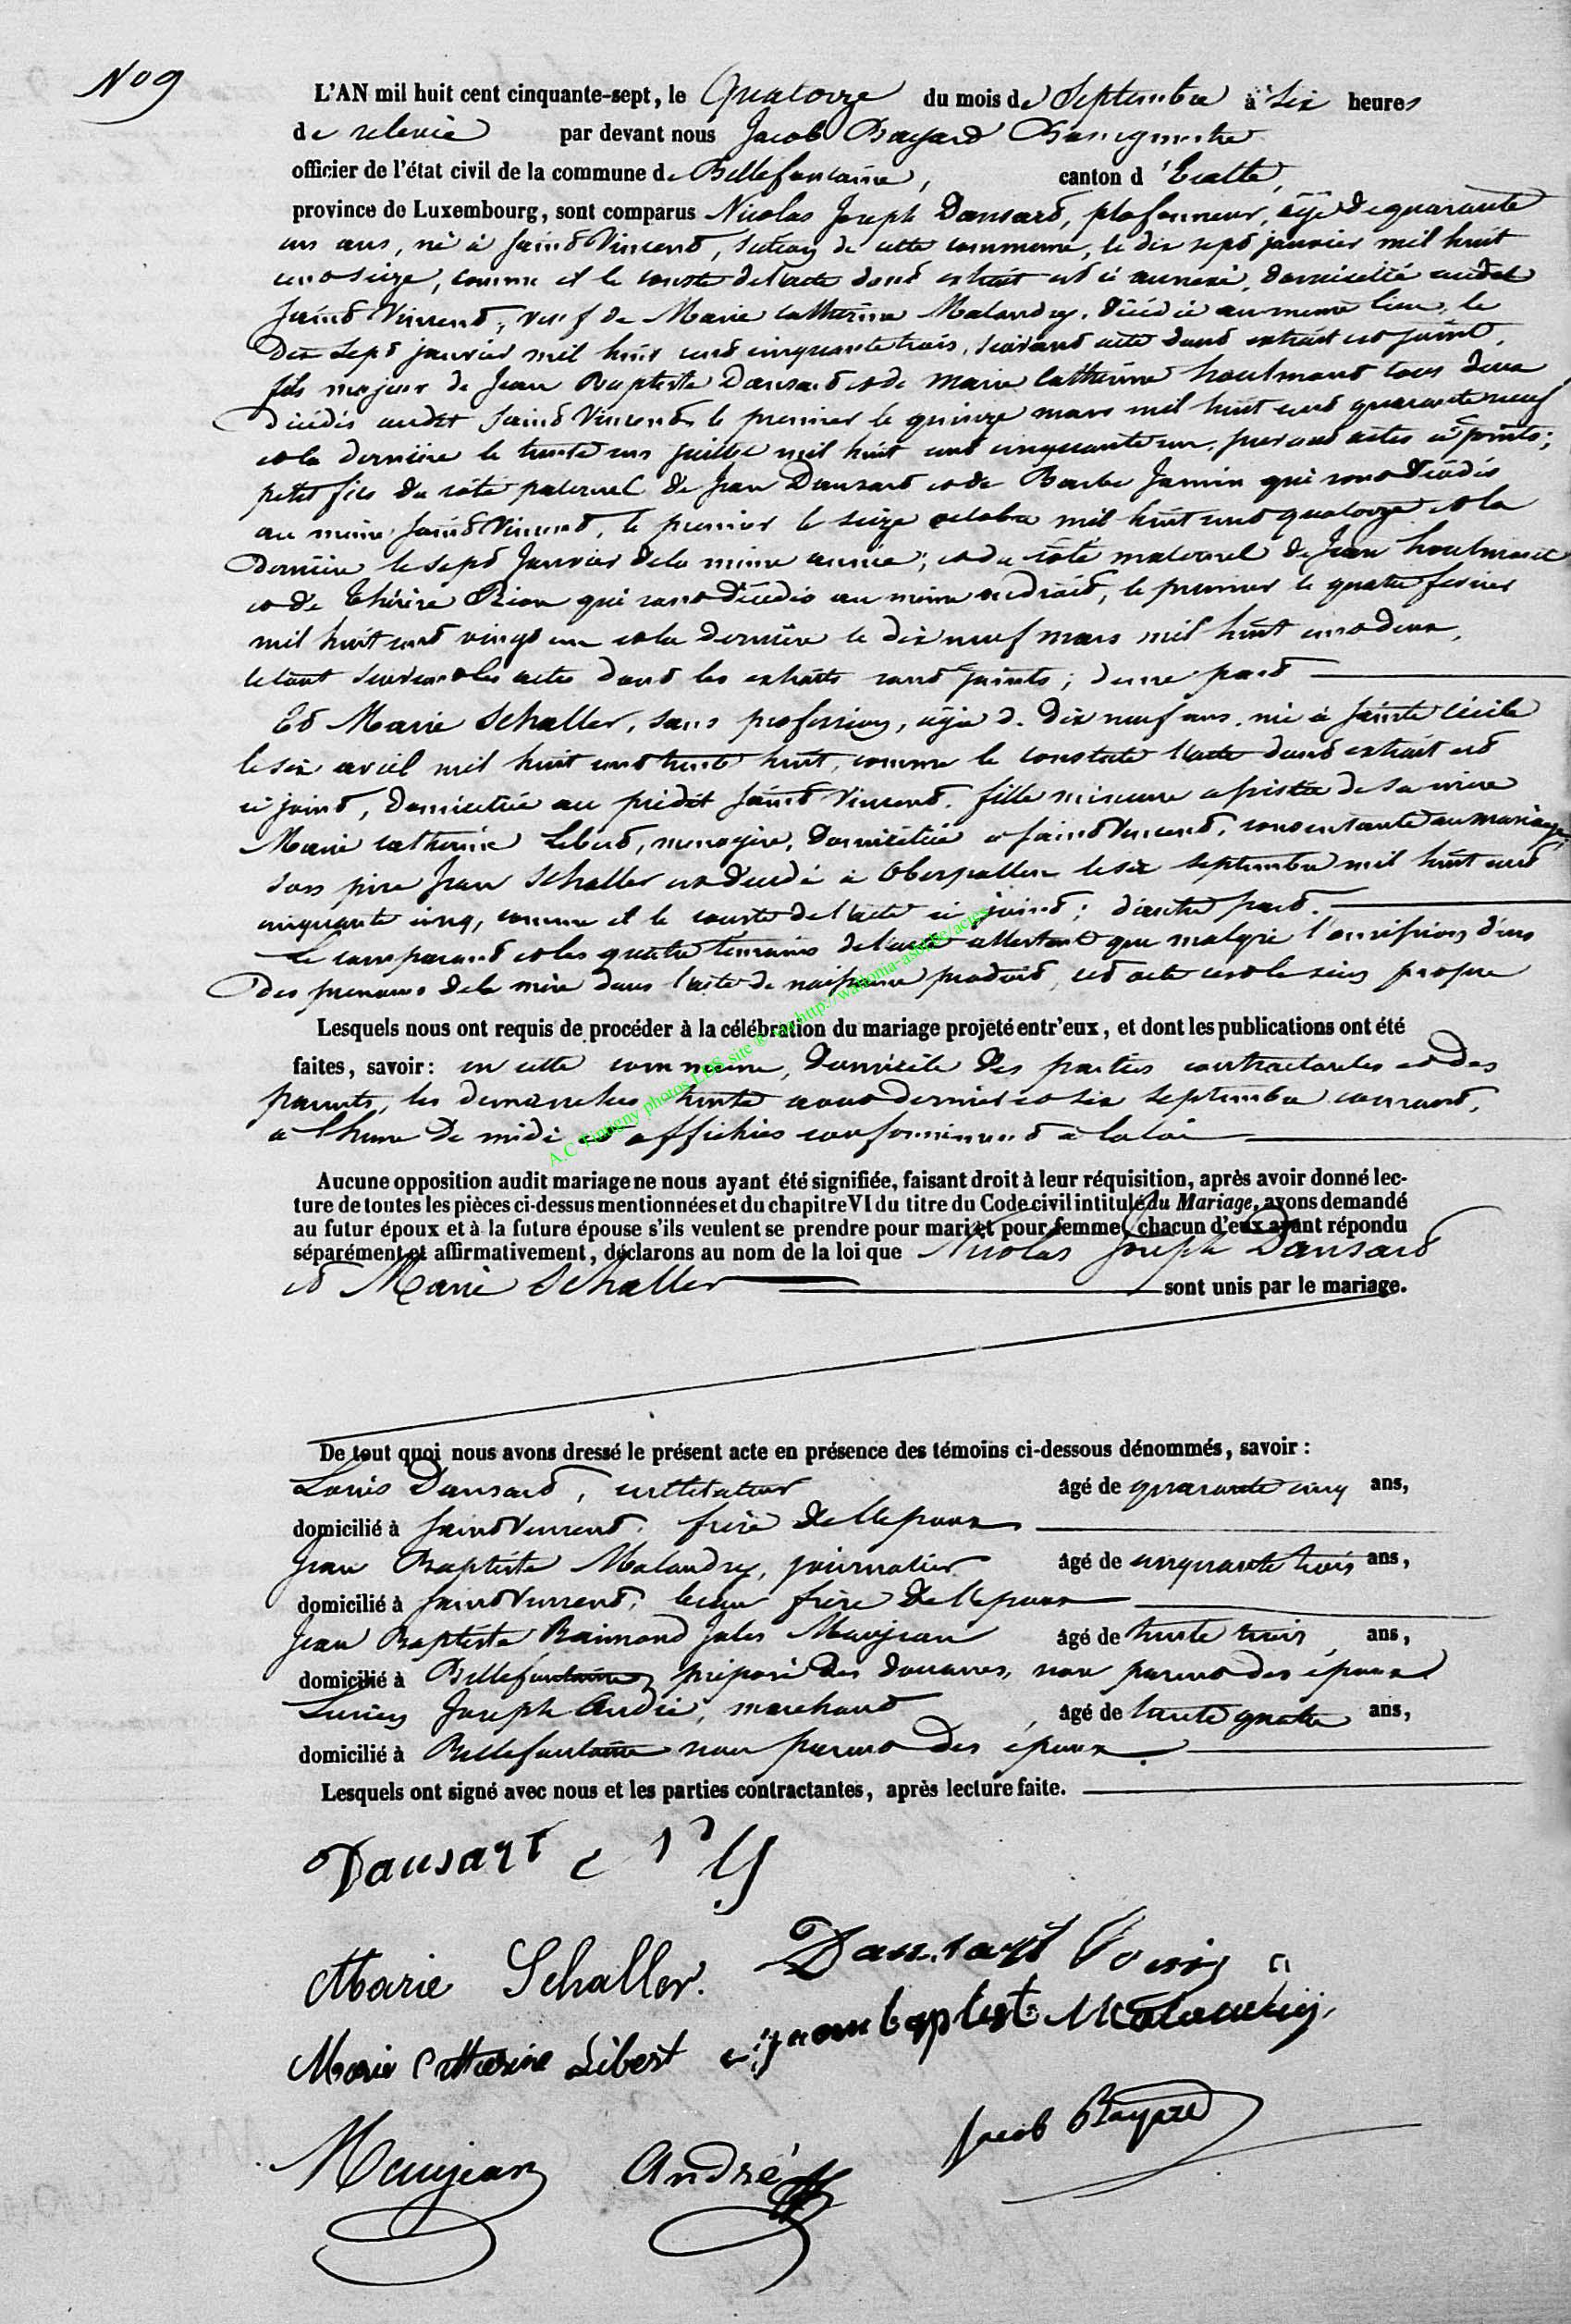 No 9
L'AN mil huit cent cinquante-sept, le Quatorze du mois de Septembre à six heures
de relevée par devant nous Jacob Bayard Bourgmestre
officier de l'état civil de la commune de Bellefontaine, canton d'Etalle,
province de Luxembourg, sont comparus Nicolas Joseph Dansard, plafonneur, âgé de quarante
un ans, né à Saint Vincent, section de cette commune, le dix sept janvier mil huit
cent seize, comme il le conste de l'acte dont extrait est ci annexé, domicilié audit
Saint Vincent, veuf de Marie Catherine Malandry, décédée au même lieu, le
dix sept janvier mil huit cent cinquante trois, suivant acte dont extrait est joint,
fils majeur de Jean Baptiste Dansard et de Marie Catherine houlmont tous deux
décédés audit Saint Vincent, le premier le quinze mars mil huit cent quarante neuf
et la dernière le trente un juillet mil huit cent cinquante un, suivant actes ci joints;
petit fils du côté paternel de Jean Dansard et de Barbe Jamin qui sont décédés
au même Saint Vincent, le premier le seize octobre mil huit cent quatorze et la
dernière le sept Janvier de la même année; et du côté maternel de Jean houlmont
et de Thérèse Rion qui sont décédés au même endroit, le premier le quatre fevrier
mil huit cent vingt un et la dernière le dix neuf mars mil huit cent deux,
le tout suivant les actes dont les extraits sont joints; d'une part
Et Marie Schaller, sans profession, âgée de dix neuf ans, née à Sainte Cécile
le six avril mil huit cent trente huit, comme le constate l'acte dont extrait est
ci joint, domiciliée au prédit Saint Vincent, fille mineure assistée de sa mère
Marie Catherine Libert, menagère, domiciliée à Saint Vincent, consentante au mariage,
son père Jean Schaller est décédé à Oberpallen le six septembre mil huit cent
cinquante cinq, comme il le conste de l'acte ci joint; d'autre part.
Le comparant et les quatre temoins de l'acte attestent que malgré l'omission d'un
des prenoms de la mère dans l'acte de naissance produit, cet acte est le sien propre
Lesquels nous ont requis de procéder à la célébration du mariage projeté entr'eux, et dont les publications ont été
faites, savoir: en cette commune, domicile des parties contractantes et des
parents, les dimanches trente aout dernier et six septembre courant,
à l'heure de midi et affichées conformément à la loi
Aucune opposition audit mariage ne nous ayant été signifiée, faisant droit à leur réquisition, après avoir donné lec-
ture de toutes les pièces ci-dessus mentionnées et du chapitre VI du titre du Code civil intitulé du Mariage, avons demandé
au futur époux et à la future épouse s'ils veulent se prendre pour mari et pour femme, chacun d'eux ayant répondu
séparément et affirmativement, déclarons au nom de la loi que Nicolas Joseph Dansard
et Marie Schaller sont unis par le mariage.
De tout quoi nous avons dressé le présent acte en présence des témoins ci-dessous dénommés, savoir:
Louis Dansard, cultivateur âgé de quarante cinq ans,
domicilié à Saint Vincent, frère de l'époux
Jean Baptiste Malandry, journalier âgé de cinquante trois ans,
domicilié à Saint Vincent, beau frère de l'époux
Jean Baptiste Raimond Jules Maujean âgé de trente trois ans,
domicilié à Bellefontaine, préposé des douanes, non parent des époux
Lucien Joseph André, marchand, âgé de trente quatre ans,
domicilié à Bellefontaine non parent des époux.
Lesquels ont signé avec nous et les parties contractantes, après lecture faite.
Dausart
Marie Schaller. Dansart Louis
Marie Catherine Libert jean baptiste Malandry
Jacob Bayard
Maujean André